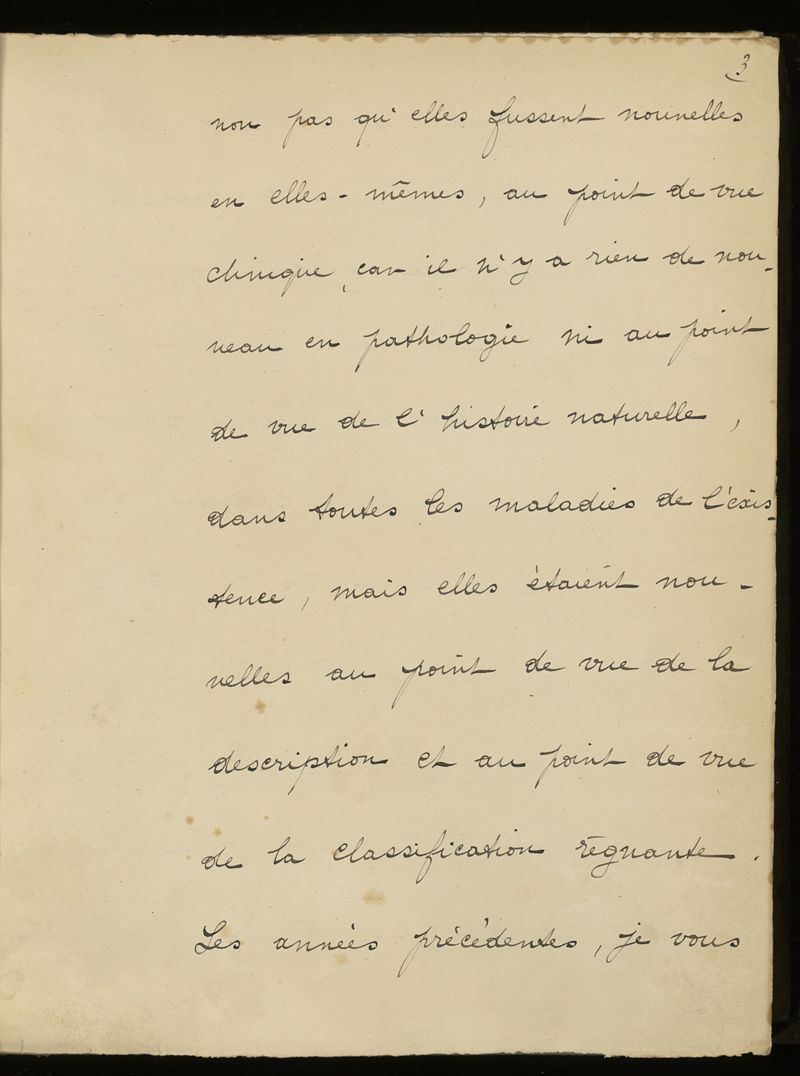 3
non pas qu'elles fussent nouvelles
en elles-mêmes, au point de vue
clinique, car il n'y a rien de nou-
veau en pathologie ni au point
de vue de l'histoire naturelle,
dans toutes les maladies de l'éxis-
tence, mais elles étaient nou-
velles au point de vue de la
description et au point de vue
de la classification régnante.
Les années précédentes, je vous